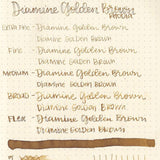 Diamine Golden Brown
EXTRA FINE - Diamine Golden Brown
Diamine Golden Brown
FINE - Diamine Golden Brown
Diamine Golden Brown
MEDIUM - Diamine Golden Brown
Diamine Golden Brown
BROAD - Diamine Golden Brown
Diamine Golden Brown
FLEX - Diamine Golden Brown
Diamine Golden Brown